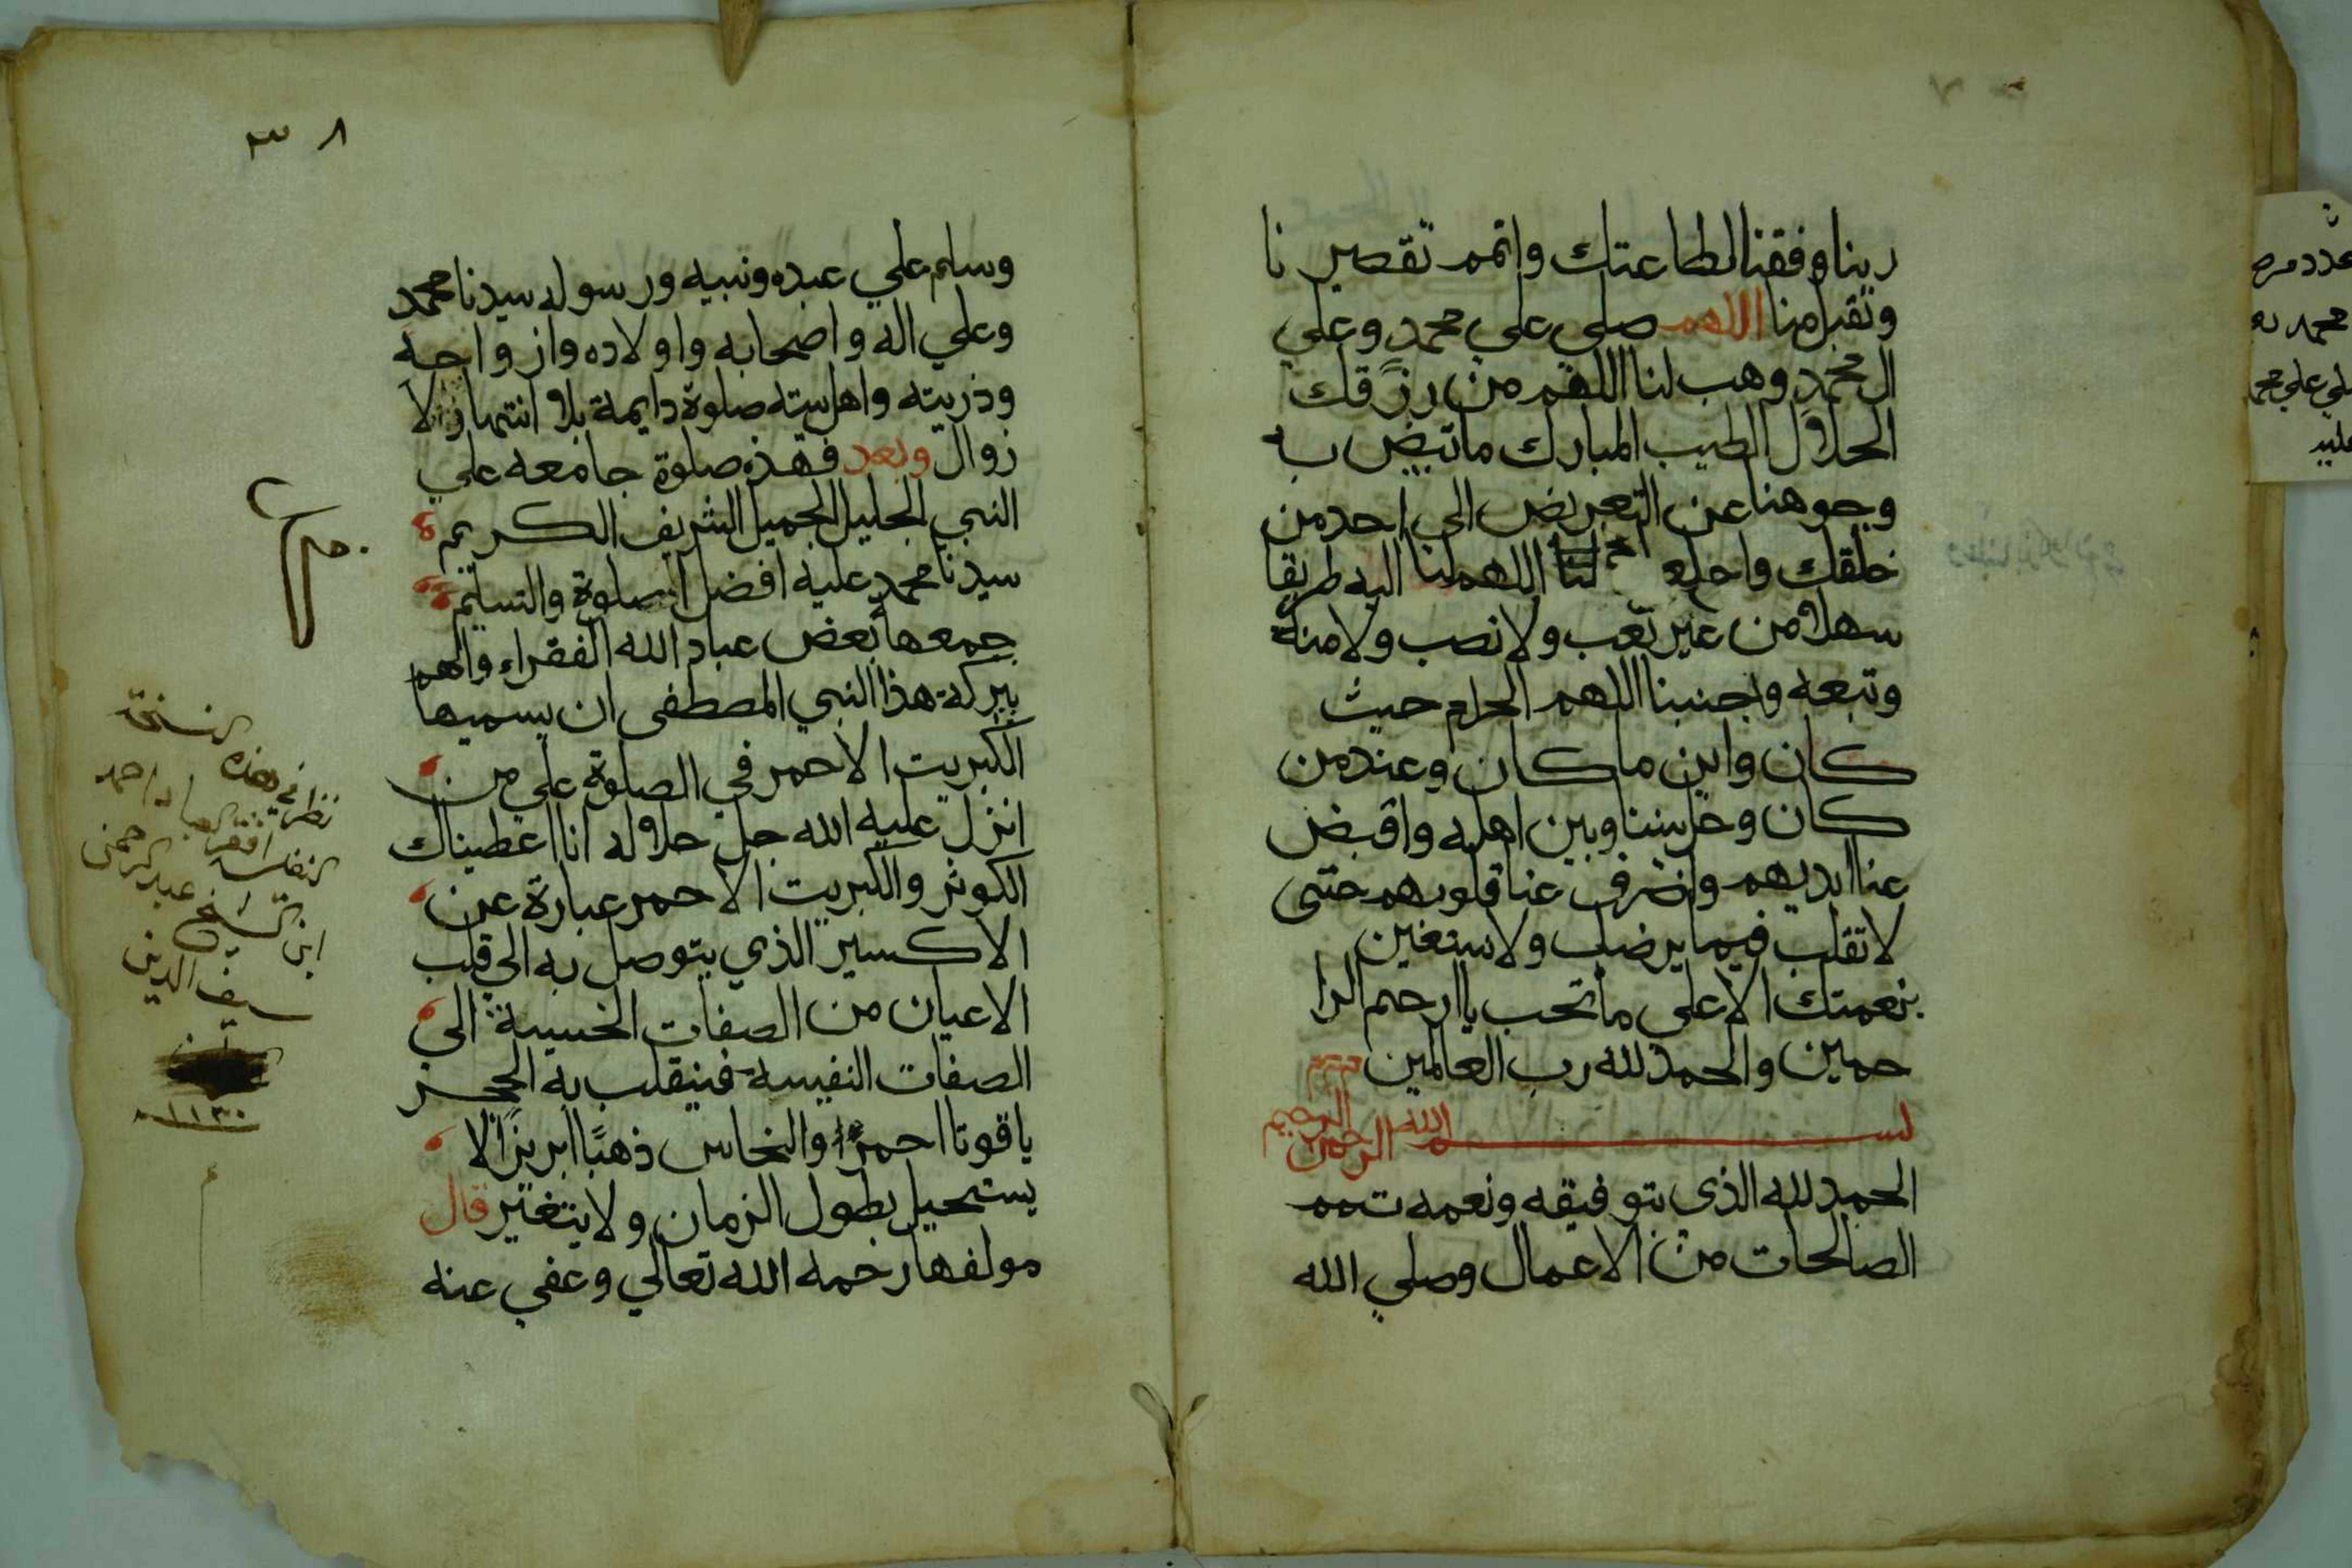 ربنا وفقنا لطاعتك واتمم تقصيرنا
وتقبل منا اللهم صلي علي محمد وعلي
ال محمد وهب لنا اللهم من رزقك
الحلال الطيب المبارك ما تبيض به
وجوهنا عن التعريض الى احد من
خلقك واجعل لنا اللهم لنا اليه طريقا
سهلا من غير تعب ولا نصب ولا منة
وتبعه واجنبنا اللهم الحرام حيث
كان واين ما كان وعند من
كان وحل بيننا وبين اهله واقبض
عنا ايديهم واصرف عنا قلوبهم حتى
لا تقلب فيما يرضك ولا نستعين
بنعمتك الا على ما تحب يا ارحم الرا
حمين والحمد لله رب العالمين
بسم الله الرحمن الرحيم
الحمد لله الذي بتوفيقه ونعمه تتم
الصالحات من الاعمال وصلي الله
٣٨
وسلم علي عبده ونبيه ورسوله سيدنا محمد
وعلي اله واصحابه واولاده وازواجه
وذريته واهل بيته صلوة دايمة بلا انتها ولا
زوال وبعد فهذه صلوة جامعه علي
النبي الجليل الجميل الشريف الكريم
سيدنا محمد عليه افضل الصلوة والتسليم
جمعها بعض عباد الله الفقراء والهم
ببركة هذا النبي المصطفى ان يسميها
الكبريت الاحمر في الصلوة علي من
انزل عليه الله جل جلاله انا اعطيناك
الكوثر والكبريت الاحمر عبارة عن
الاكسير الذي يتوصل به الي قلب
الاعيان من الصفات الخسيسة الي
الصفات النفيسه فينقلب به الحجر
ياقوتا احمرا والنحاس ذهبًا ابريزًا لا
يستحيل بطول الزمان ولا يتغير قال
مولفها رحمه الله تعالي وعفي عنه
نظر في هذه النسخة
افقر العباد احمد
ابن الشيخ عبد الرحمن
سيف الدين
١١٣٠